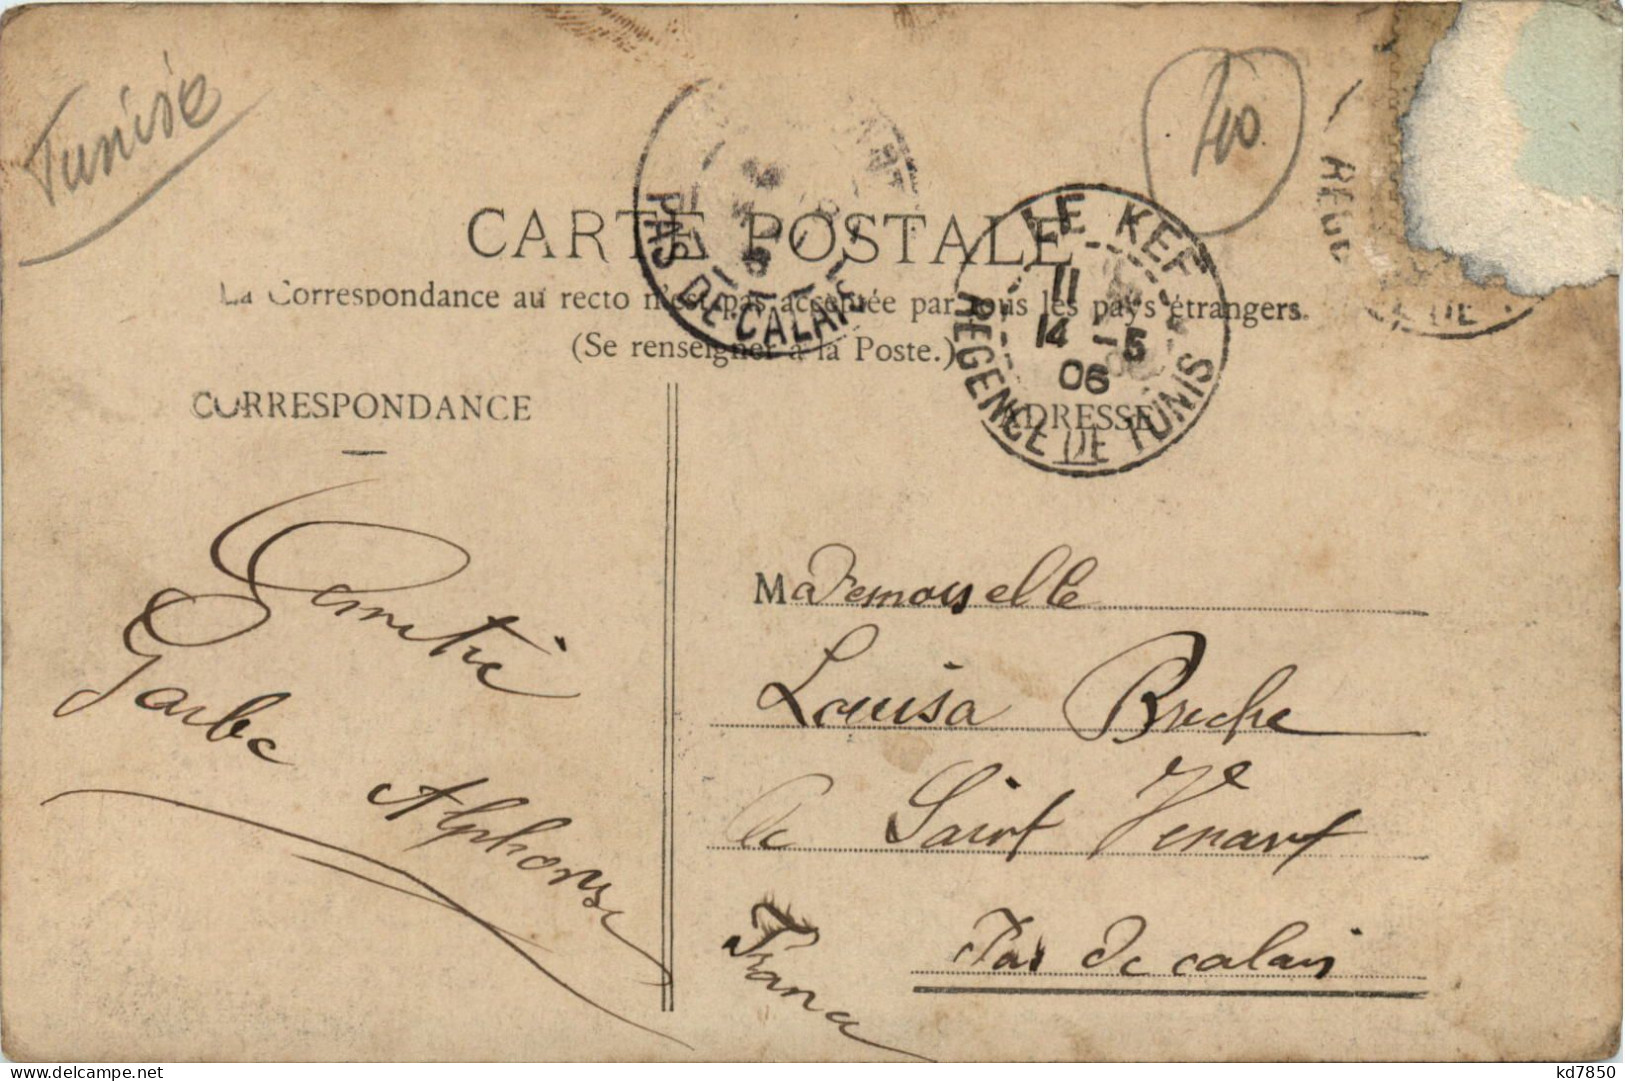 Tunisie
400
CARTE POSTALE
La Correspondance au recto n'est pas acceptée par tous les pays étrangers.
(Se renseigner à la Poste.)
PAS DE CALAIS
LE KEF
11
14 - 5
06
REGENCE DE TUNIS
REGE
DE
CORRESPONDANCE
ADRESSE
Amitié
Garbe
Alphonse
Mademoiselle
Louisa Bruche
a Saint Venant
Pas de calais
France
kd7850